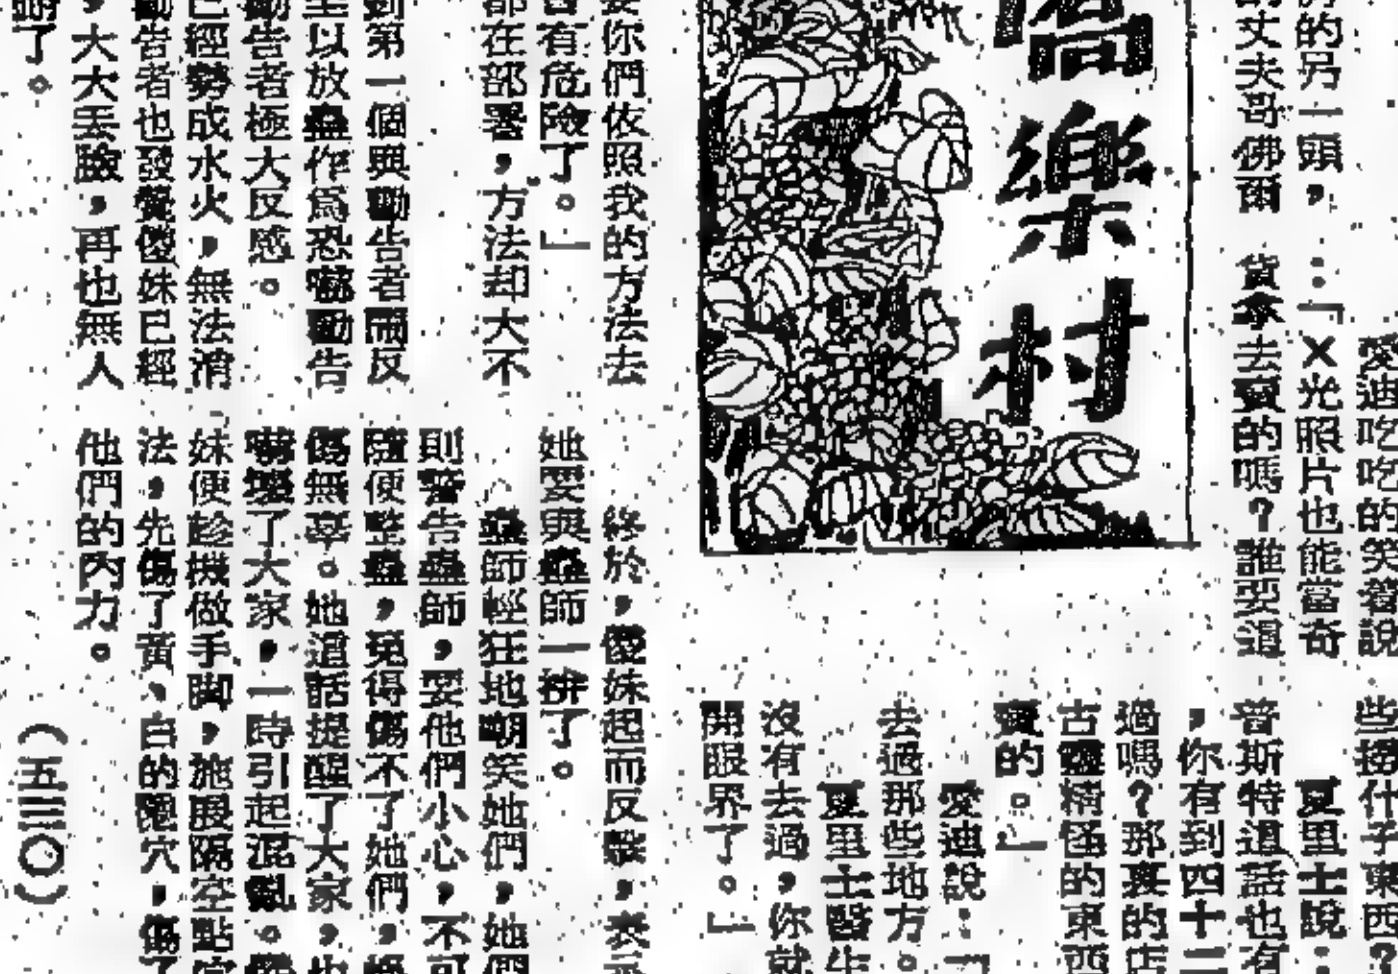 愛迪吃吃的笑着說
的另一頭，：「X光照片也能當奇
丈夫哥佛爾
貨拿去賣的嗎？誰要這
些撈什子東西？
夏里士說：
普斯特這話也有
，你有到四十二
過嗎？那裏的店
古靈精怪的東西
賣的。」
愛迪說：「
去過那些地方。
夏里士醫生
沒有去過，你就
開眼界了。」
樂村
要你們依照我的方法去
有危險了。」
都在部署，方法却大不
到第一個與勸告者鬧反
至以放蠱作為恐嚇勸告
勸告者極大反感。
已經勢成水火，無法消
勸告者也發覺傻妹已經
，大大丟臉，再也無人
了。
終於，傻妹起而反擊，表示
她要與蠱師一拚了。
蠱師輕狂地嘲笑她們，她們
則警告蠱師，要他們小心，不可
隨便整蠱，免得傷不了她們，
傷無辜。她這話提醒了大家，也
嚇壞了大家，一時引起混亂。傻
妹便趁機做手脚，施展隔空點穴
法，先傷了黃、白的隱穴，傷了
他們的內力。
（五三〇）